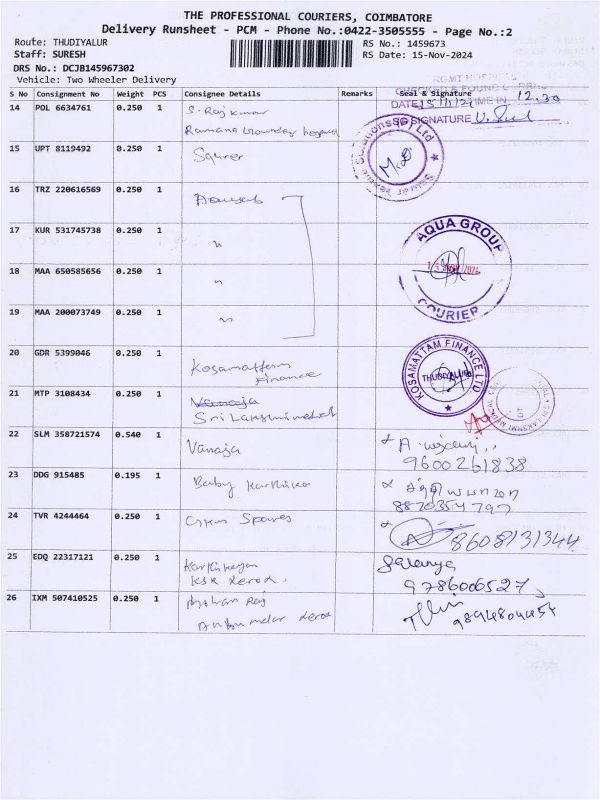 THE PROFESSIONAL COURIERS, COIMBATORE
Delivery Runsheet - PCM - Phone No.:0422-3505555 - Page No.:2
Route: THUDIYALUR
RS No.: 1459673
Staff: SURESH
RS Date: 15-Nov-2024
DRS No.: DCJB145967302
Vehicle: Two Wheeler Delivery
S No Consignment No Weight PCS Consignee Details Remarks Seal & Signature
DATE 15/11/24 TIME IN 12.30
SIGNATURE
14 POL 6634761 0.250 1 S. Raj Kumar
15 UPT 8119492 0.250 1
16 TRZ 220616569 0.250 1
17 KUR 531745738 0.250 1 "
AQUA GROUP
COURIER
18 MAA 650585656 0.250 1 "
19 MAA 200073749 0.250 1 "
20 GDR 5399046 0.250 1 Kosamattam
Finance
KOSAMATTAM FINANCE LTD
THUDIYALUR
21 MTP 3108434 0.250 1 Vanaja
Sri Lakshmi
22 SLM 358721574 0.540 1 Vanaja
9600261838
23 DDG 915485 0.195 1 Baby Karthika
8870354797
24 TVR 4244464 0.250 1 Spares
8608131344
25 EDQ 22317121 0.250 1 Karthikeyan
KSK Xerox.
9786006527
26 IXM 507410525 0.250 1 Mohan Raj
Anbu malar Xerox
9894804454